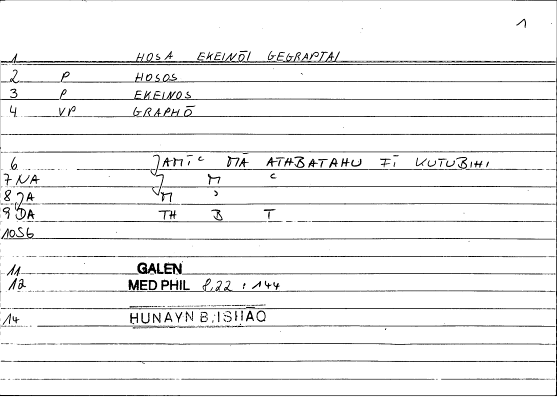 1
1 HOSA EKEINŌI GEGRAPTAI
2 P HOSOS
3 P EKEINOS
4 VP GRAPHŌ
6 ǦAMĪC MĀ ATHBATAHU FĪ KUTUBIHI
7 NA Ǧ M C
8 ǦA M
9 DA TH B T
10 S6
11 GALEN
12 MED PHIL 8,22 : 144
14 HUNAYN B. ISHAQ